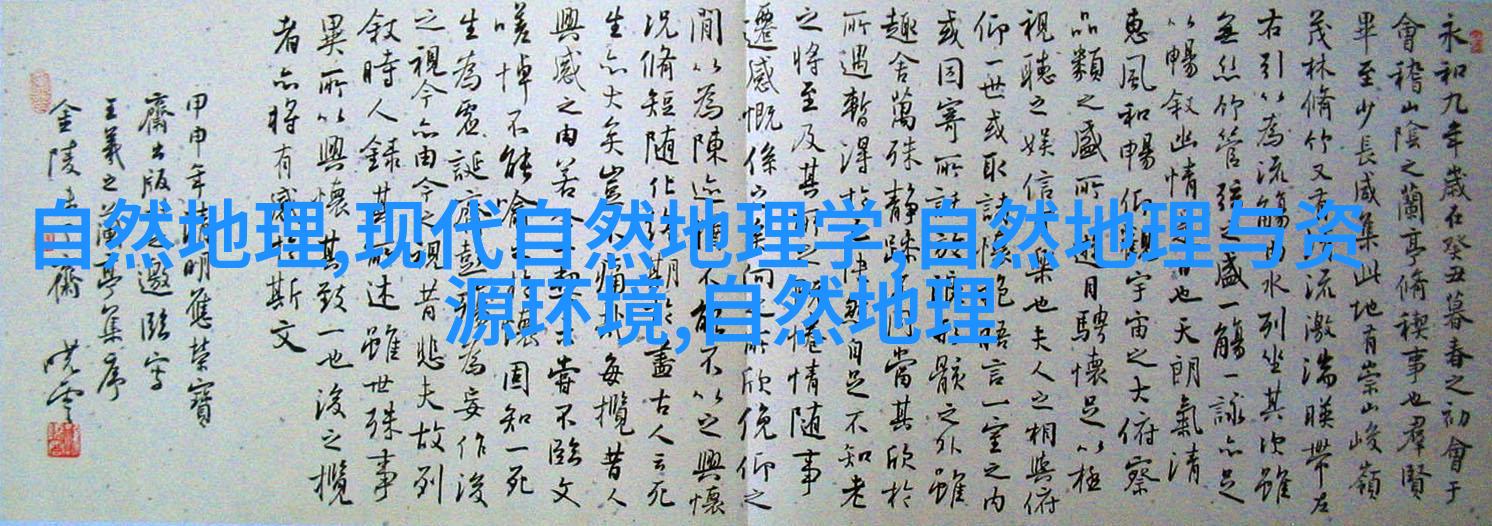 自然地理,现代自然地理学,自然地理与资
源环境,自然地理
永和九年歲在癸丑暮春之初會于
會稽山陰之蘭亭脩稧事也羣賢
畢至少長咸集此地有崇山峻嶺
茂林脩竹又有清流激湍暎帶左
右引以為流觴曲水列坐其次雖
無絲竹管弦之盛一觴一詠亦足
以暢敘幽情是日也天朗氣清
惠風和暢仰觀宇宙之大俯察
品類之盛所以遊目騁懷足以極
視聽之娛信可樂也夫人之相與俯
仰一世或取諸懷抱悟言一室之內
或因寄所託放浪形骸之外雖
趣舍萬殊靜躁不同當其欣於
所遇暫得於己快然自足不知老
之將至及其所之既惓情隨事
遷感慨係之矣向之所欣俛仰之
間以為陳迹猶不能不以之興懷
況脩短隨化終期於盡古人云死
生亦大矣豈不痛哉每攬昔人
興感之由若合一契未嘗不臨文
嗟悼不能喻之於懷固知一死
生為虛誕齊彭殤為妄作後
之視今亦由今之視昔悲夫故列
敘時人錄其所述雖世殊事
異所以興懷其致一也後之攬
者亦將有感於斯文
甲申年清明應榮寶
齋出版之邀臨寫
王羲之蘭亭集序
金陵 齋